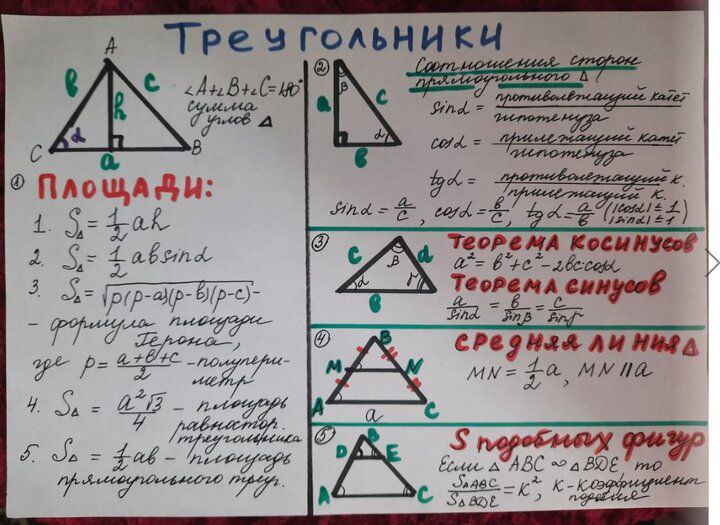 Треугольники
A
b
c
h
∠A+∠B+∠C=180°
сумма
углов Δ
α
C
a
B
① ПЛОЩАДИ:
1. SΔ = 1/2 ah
2. SΔ = 1/2 ab sinα
3. SΔ = √p(p-a)(p-b)(p-c) -
- формула площади
Герона,
где p = a+b+c/2 - полупери-
метр
4. SΔ = a²√3/4 - площадь
равностор.
треугольника
5. SΔ = 1/2 ab - площадь
прямоугольного треуг.
②
β
a
c
α
b
Соотношения сторон
прямоугольного Δ
sinα = противолежащий катет/гипотенуза
cosα = прилежащий катет/гипотенуза
tgα = противолежащий к./прилежащий к.
sinα = a/c, cosα = b/c, tgα = a/b (|cosα| ≤ 1
|sinα| ≤ 1)
③
c
β
a
α
γ
b
ТЕОРЕМА КОСИНУСОВ
a² = b² + c² - 2bc·cosα
ТЕОРЕМА СИНУСОВ
a/sinα = b/sinβ = c/sinγ
④
B
M
N
A
C
a
СРЕДНЯЯ ЛИНИЯ Δ
MN = 1/2 a, MN || a
⑤
B
D
E
A
C
S подобных фигур
Если Δ ABC ∞ ΔBDE то
SΔABC/SΔBDE = K², K - коэффициент
подобия